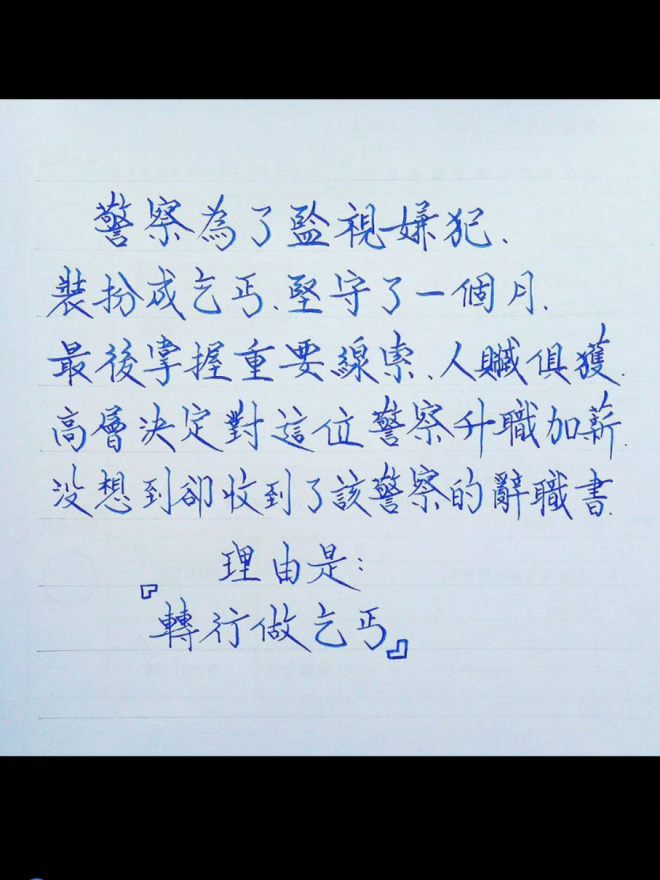 警察為了監視嫌犯、
裝扮成乞丐、堅守了一個月、
最後掌握重要線索、人贓俱獲.
高層決定對這位警察升職加薪.
沒想到卻收到了該警察的辭職書.
理由是：
『轉行做乞丐』